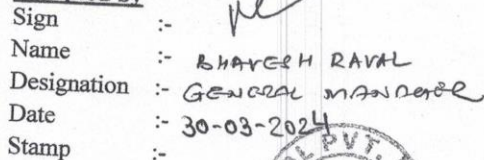 Sign :-
Name :- BHAVESH RAVAL
Designation :- GENERAL MANAGER
Date :- 30-03-2024
Stamp :-
PVT.